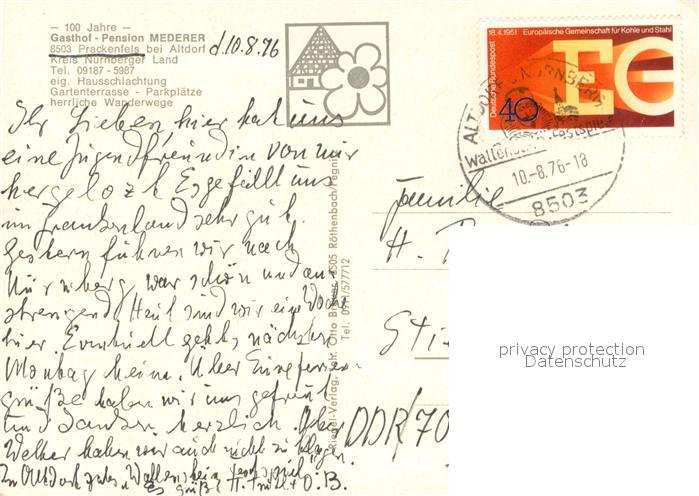 — 100 Jahre —
Gasthof - Pension MEDERER
8503 Prackenfels bei Altdorf
Kreis Nürnberger Land
Tel. 09187 - 5987
eig. Hausschlachtung
Gartenterrasse - Parkplätze
herrliche Wanderwege
d. 10.8.76
Ihr Lieben, hier hat uns
eine Jugendfreundin von mir
hergelozt. Es gefällt uns
im Frankenland sehr gut.
Gestern fuhren wir nach
Nürnberg, war schön und an-
strengend. Heut sind wir eine Woche
hier. Eventuell geht's nächsten
Montag heim. Über Eure Ferien-
grüße haben wir uns gefreut
und danken herzlich. Über
Wetter haben wir auch nicht zu klagen.
In Altdorf Wallenstein Festspiel
H.B.
Riegel-Verlag, Otto 8505 Röthenbach/Pegnitz
Tel. 0911/577712
18.4.1951 Europäische Gemeinschaft für Kohle und Stahl
Deutsche Bundespost
40
EG
ALTDORF B NÜRNBERG
Wallenstein Festspiele
10.-8.76-18
8503
Familie
H.
DDR/70
privacy protection
Datenschutz